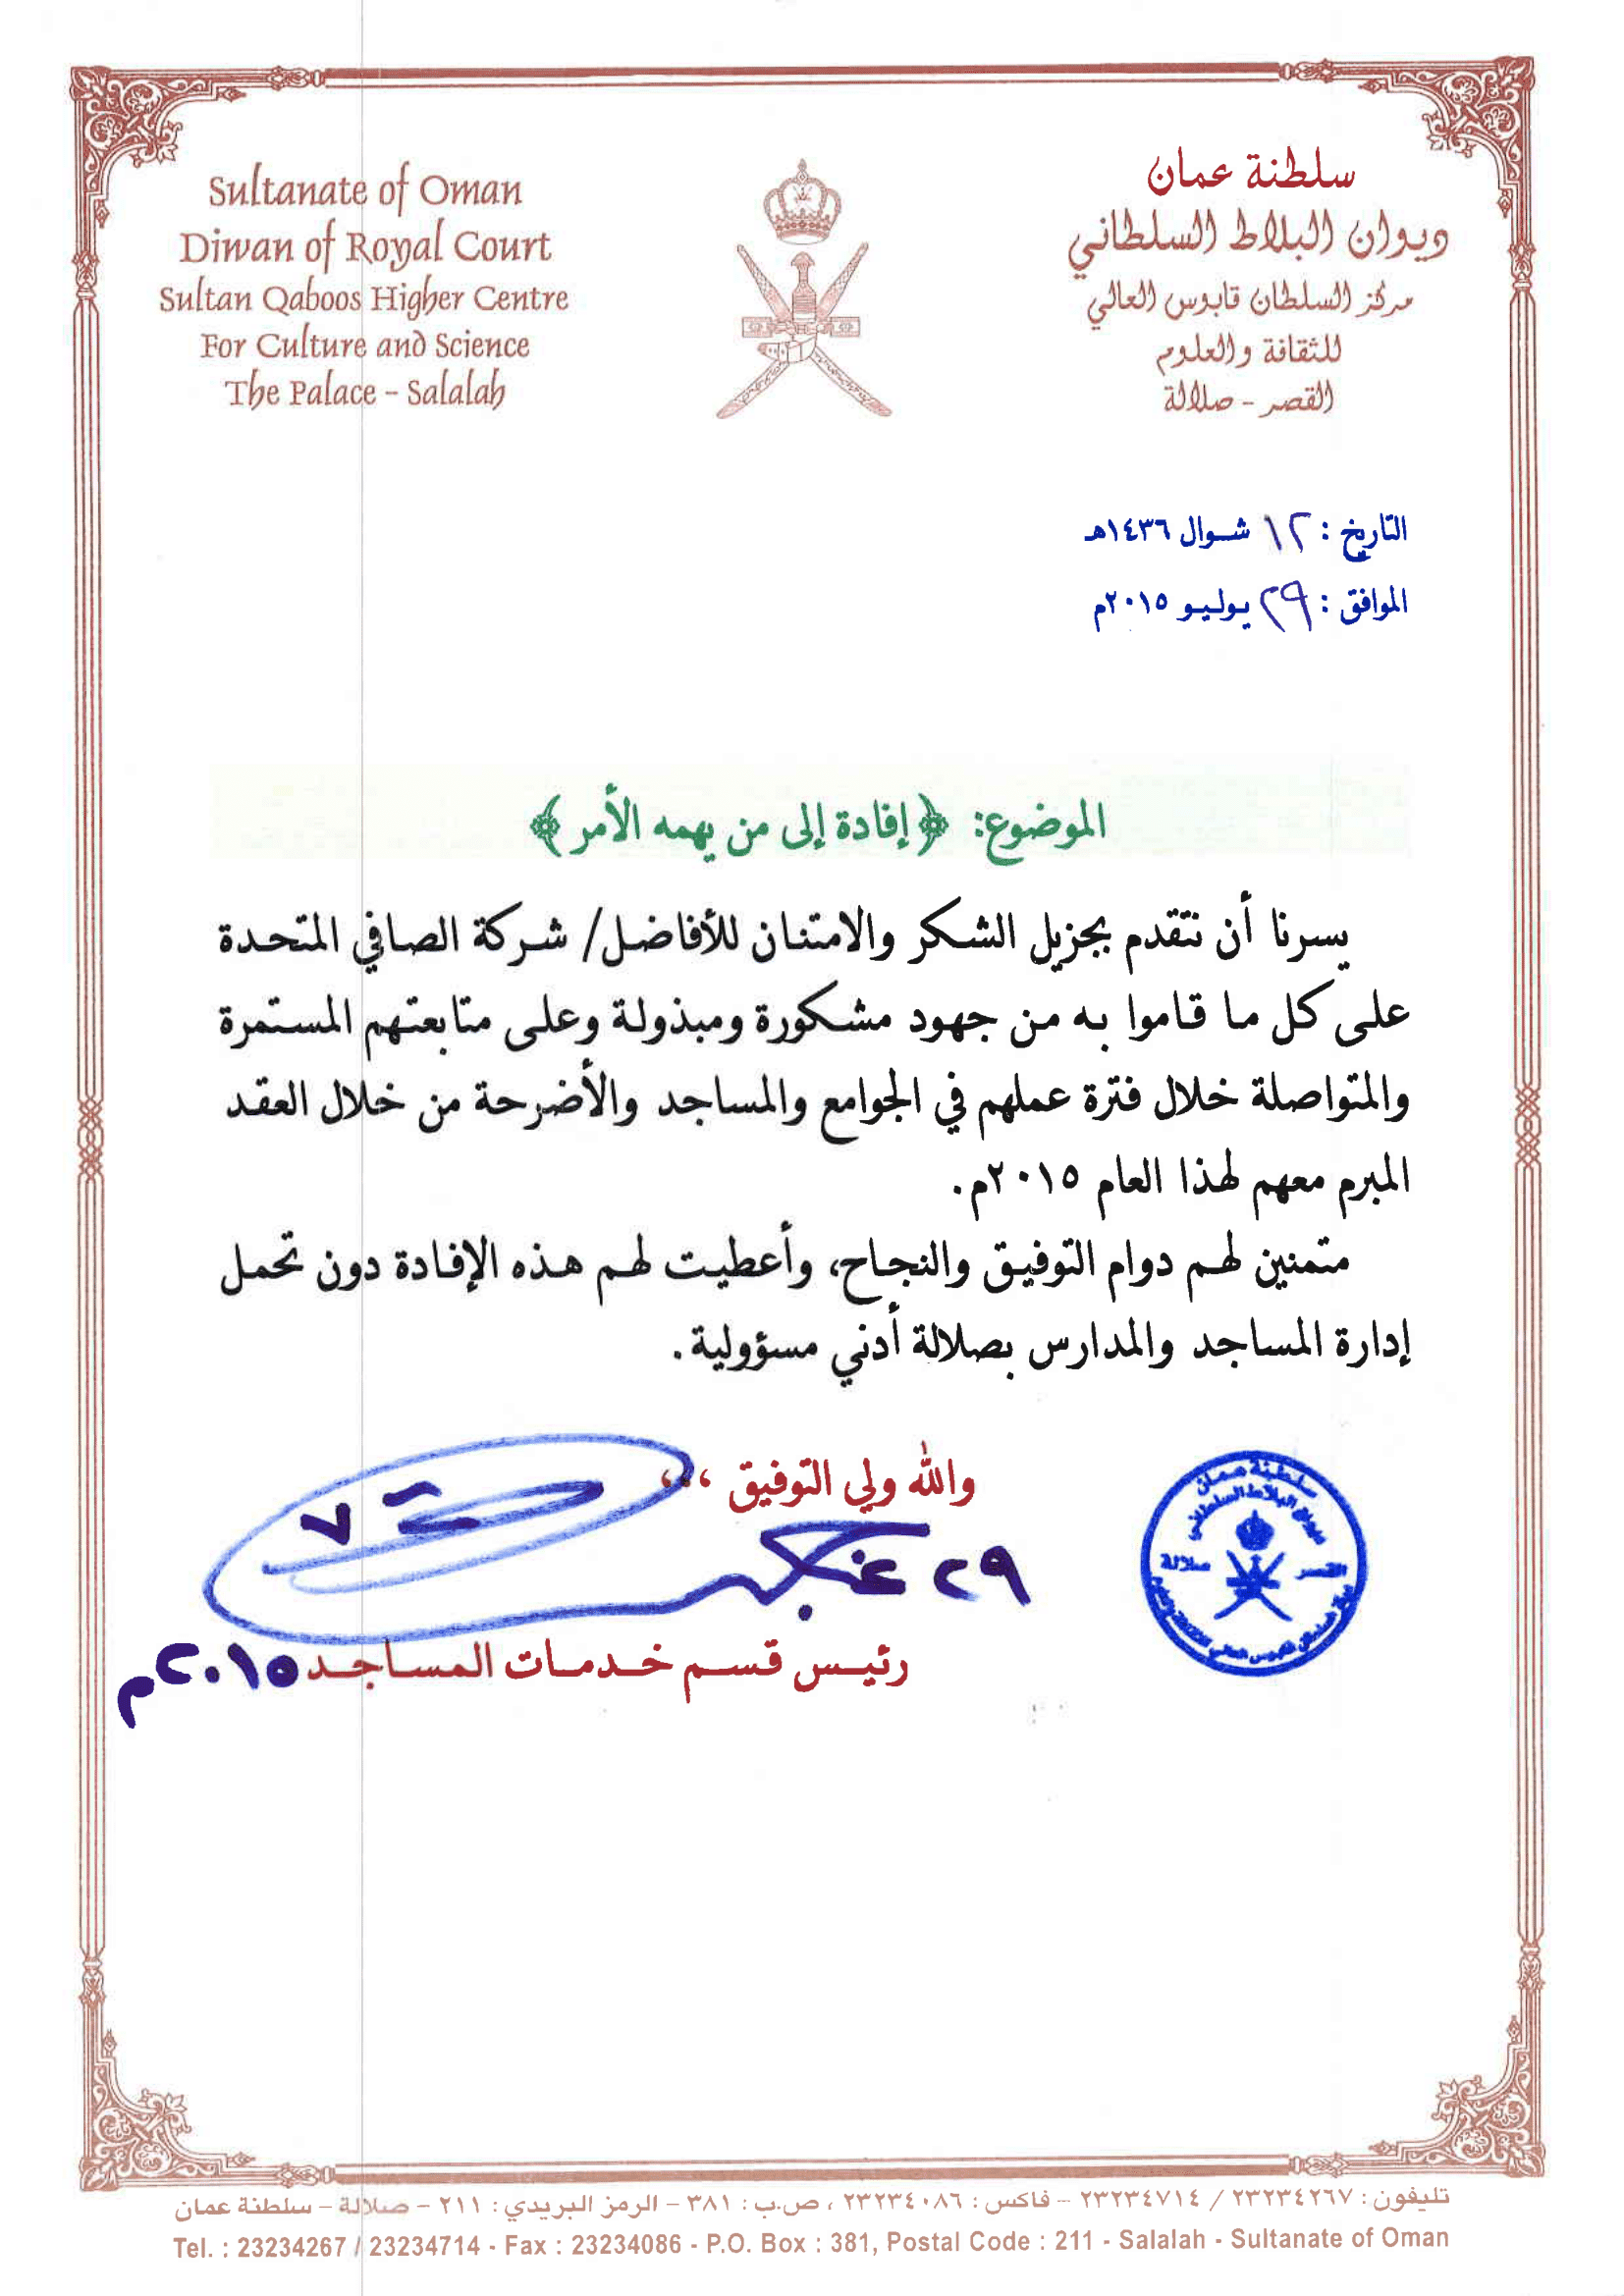 Sultanate of Oman
Diwan of Royal Court
Sultan Qaboos Higher Centre
For Culture and Science
The Palace - Salalah
سلطنة عمان
ديوان البلاط السلطاني
مركز السلطان قابوس العالي
للثقافة والعلوم
القصر - صلالة
التاريخ : ١٢ شوال ١٤٣٦هـ
الموافق : ٢٩ يوليو ٢٠١٥م
الموضوع: ﴿إفادة إلى من يهمه الأمر﴾
يسرنا أن نتقدم بجزيل الشكر والامتنان للأفاضل/ شركة الصافي المتحدة
على كل ما قاموا به من جهود مشكورة ومبذولة وعلى متابعتهم المستمرة
والمتواصلة خلال فترة عملهم في الجوامع والمساجد والأضرحة من خلال العقد
المبرم معهم لهذا العام ٢٠١٥م.
متمنين لهم دوام التوفيق والنجاح، وأعطيت لهم هذه الإفادة دون تحمل
إدارة المساجد والمدارس بصلالة أدني مسؤولية.
والله ولي التوفيق ،،،
٢٩
٧
رئيس قسم خدمات المساجد
٢٠١٥م
سلطنة عمان
ديوان البلاط السلطاني
القصر صلالة
تليفون : ٢٣٢٣٤٢٦٧ / ٢٣٢٣٤٧١٤ – فاكس : ٢٣٢٣٤٠٨٦ ، ص.ب : ٣٨١ – الرمز البريدي : ٢١١ – صلالة – سلطنة عمان
Tel. : 23234267 / 23234714 - Fax : 23234086 - P.O. Box : 381, Postal Code : 211 - Salalah - Sultanate of Oman